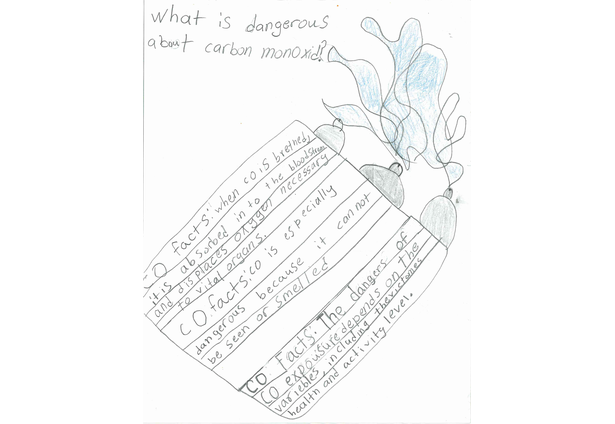 What is dangerous
about carbon monoxid!?
CO facts: when CO is brethed,
it is absorbed in to the bloodstream
and displaces oxygen necessary
to vital organs.
CO facts: CO is especially
dangerous because it can not
be seen or smelled
CO Facts: The dangers of
CO expousure depends on the
variebles, including the
health and activity level.